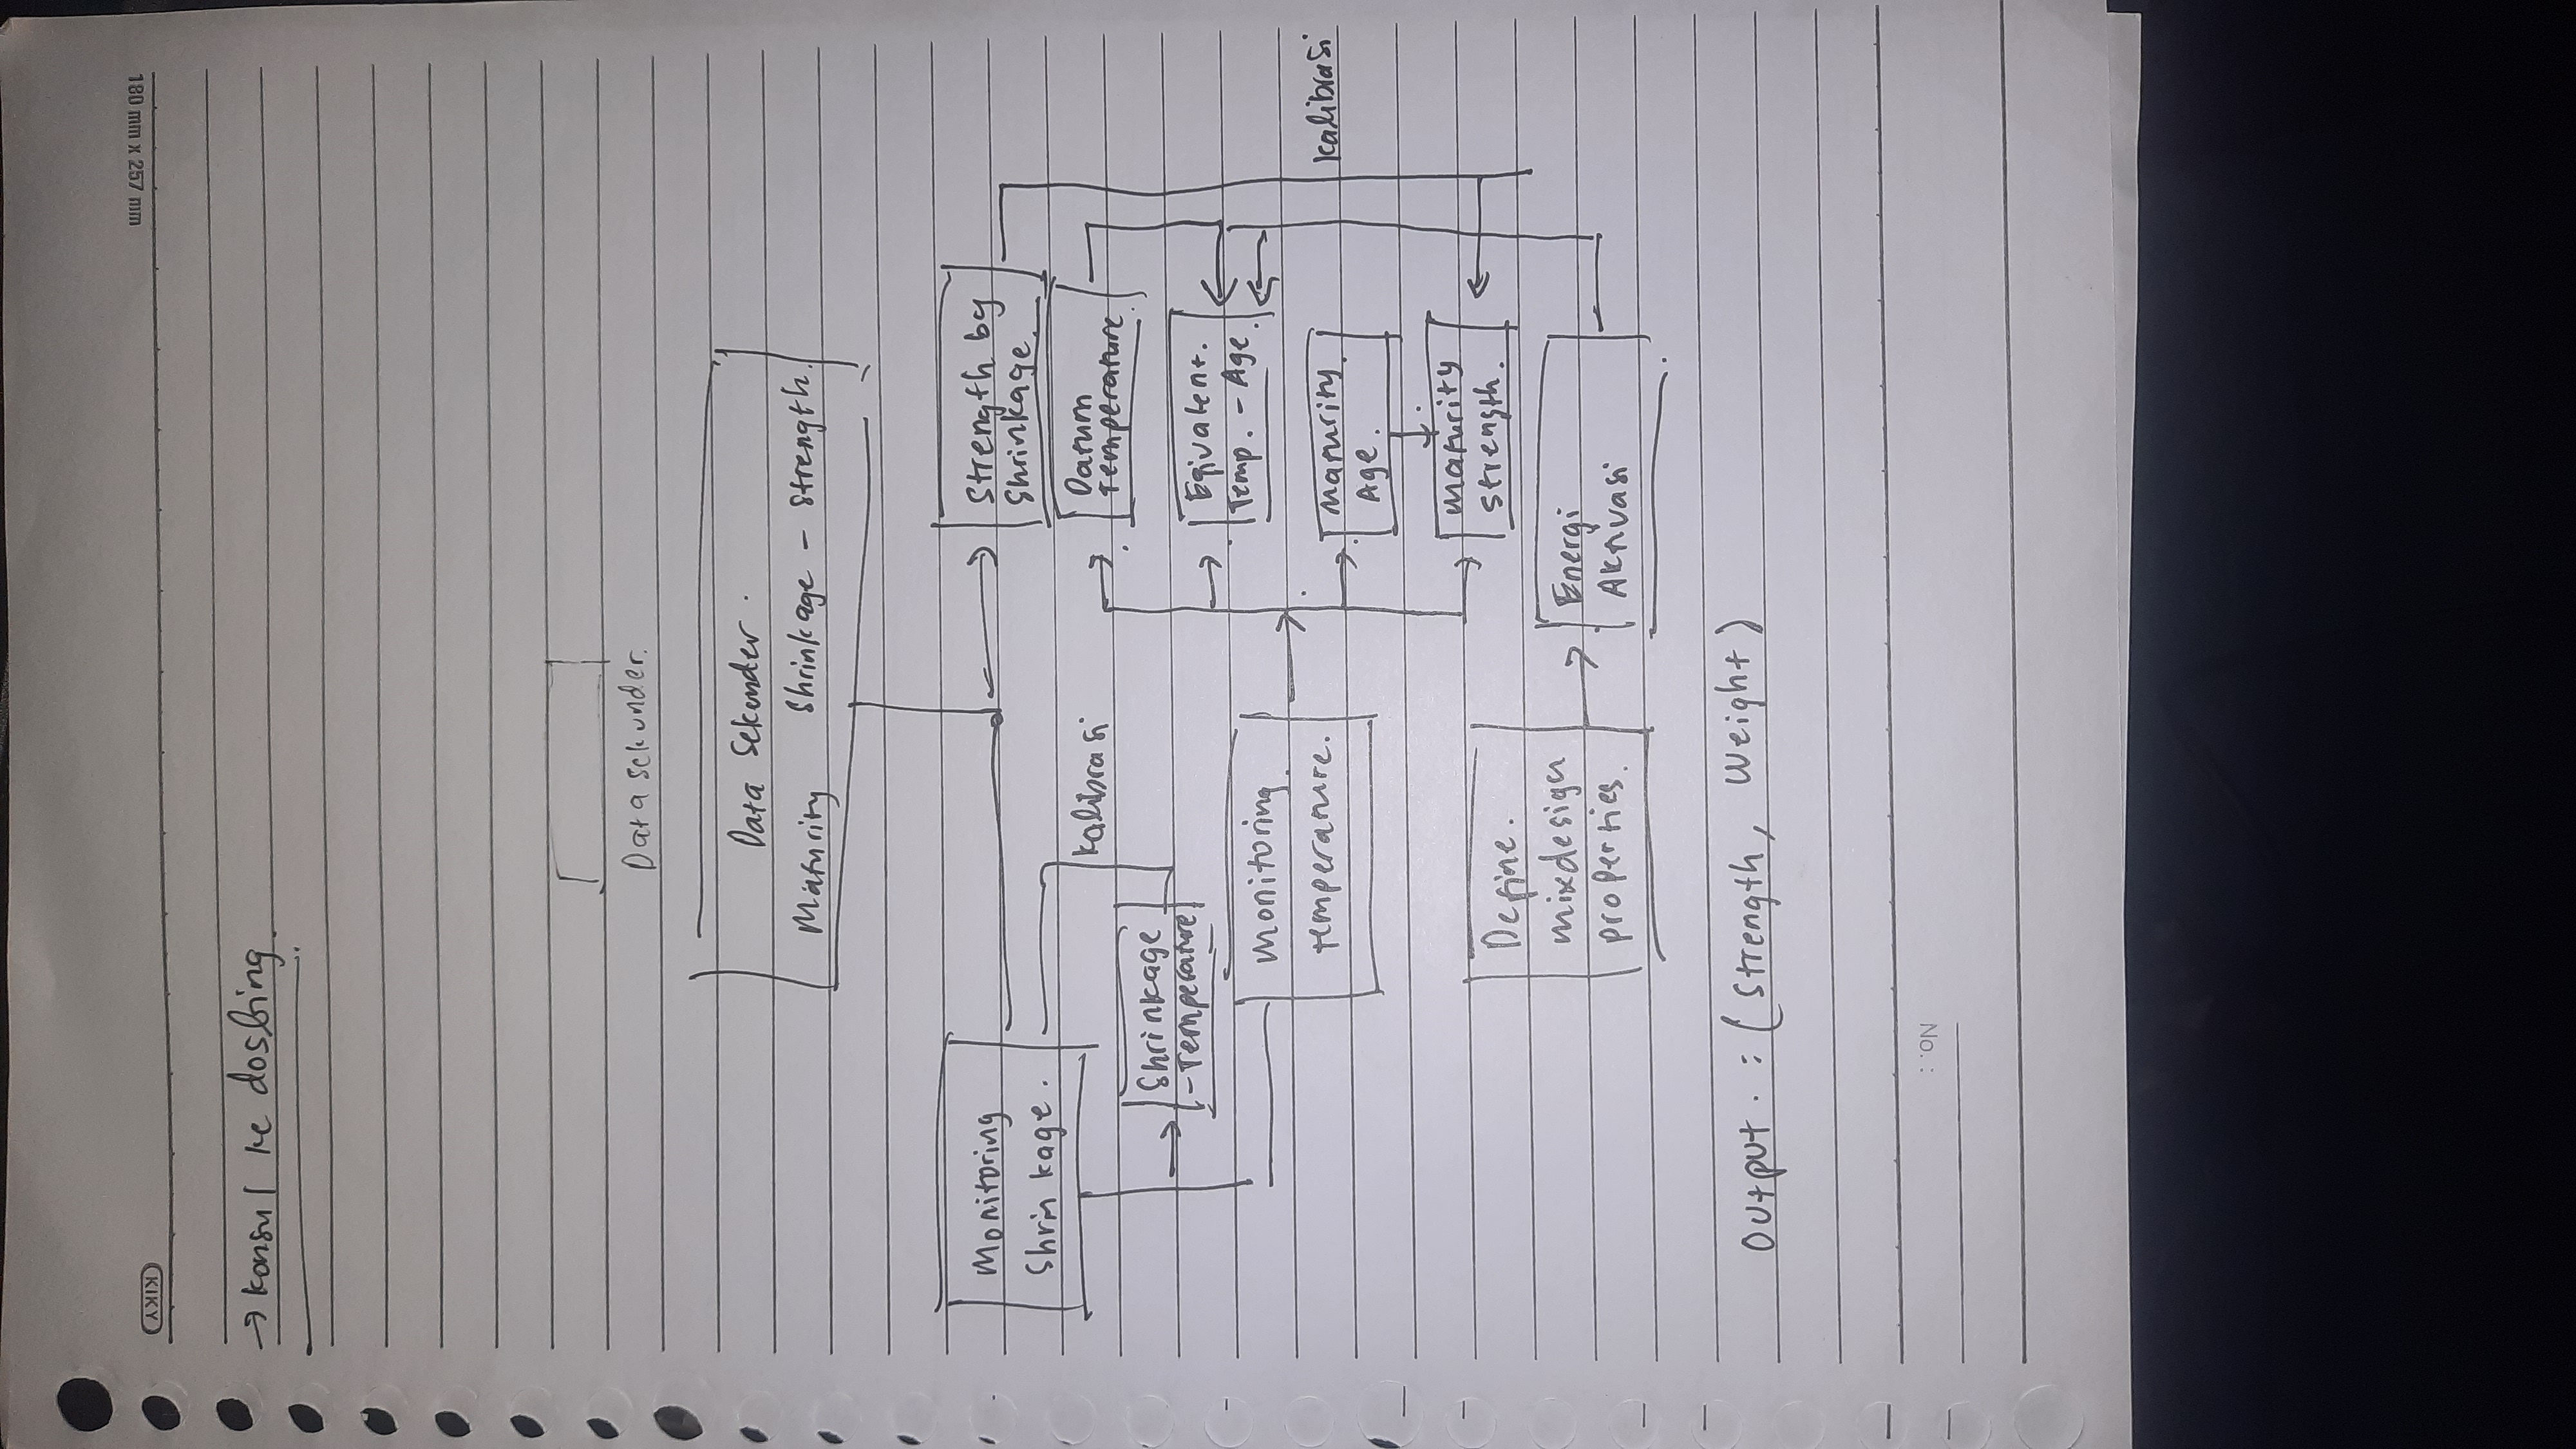 180 mm x 257 mm
KIKY
→ Konsul ke dosbing.
Data sekunder.
Data Sekunder.
Maturity Shrinkage - Strength.
Monitoring
Shrinkage.
Strength by
Shrinkage.
Kalibrasi
Datum
Temperature.
Shrinkage
-Temperature
Eqivalent.
Temp. - Age.
Monitoring
temperature.
Maturity
Age.
Kalibrasi
Maturity
Strength.
Define.
mixdesign
properties.
Energi
Aktivasi
Output. : (Strength, Weight)
No. :